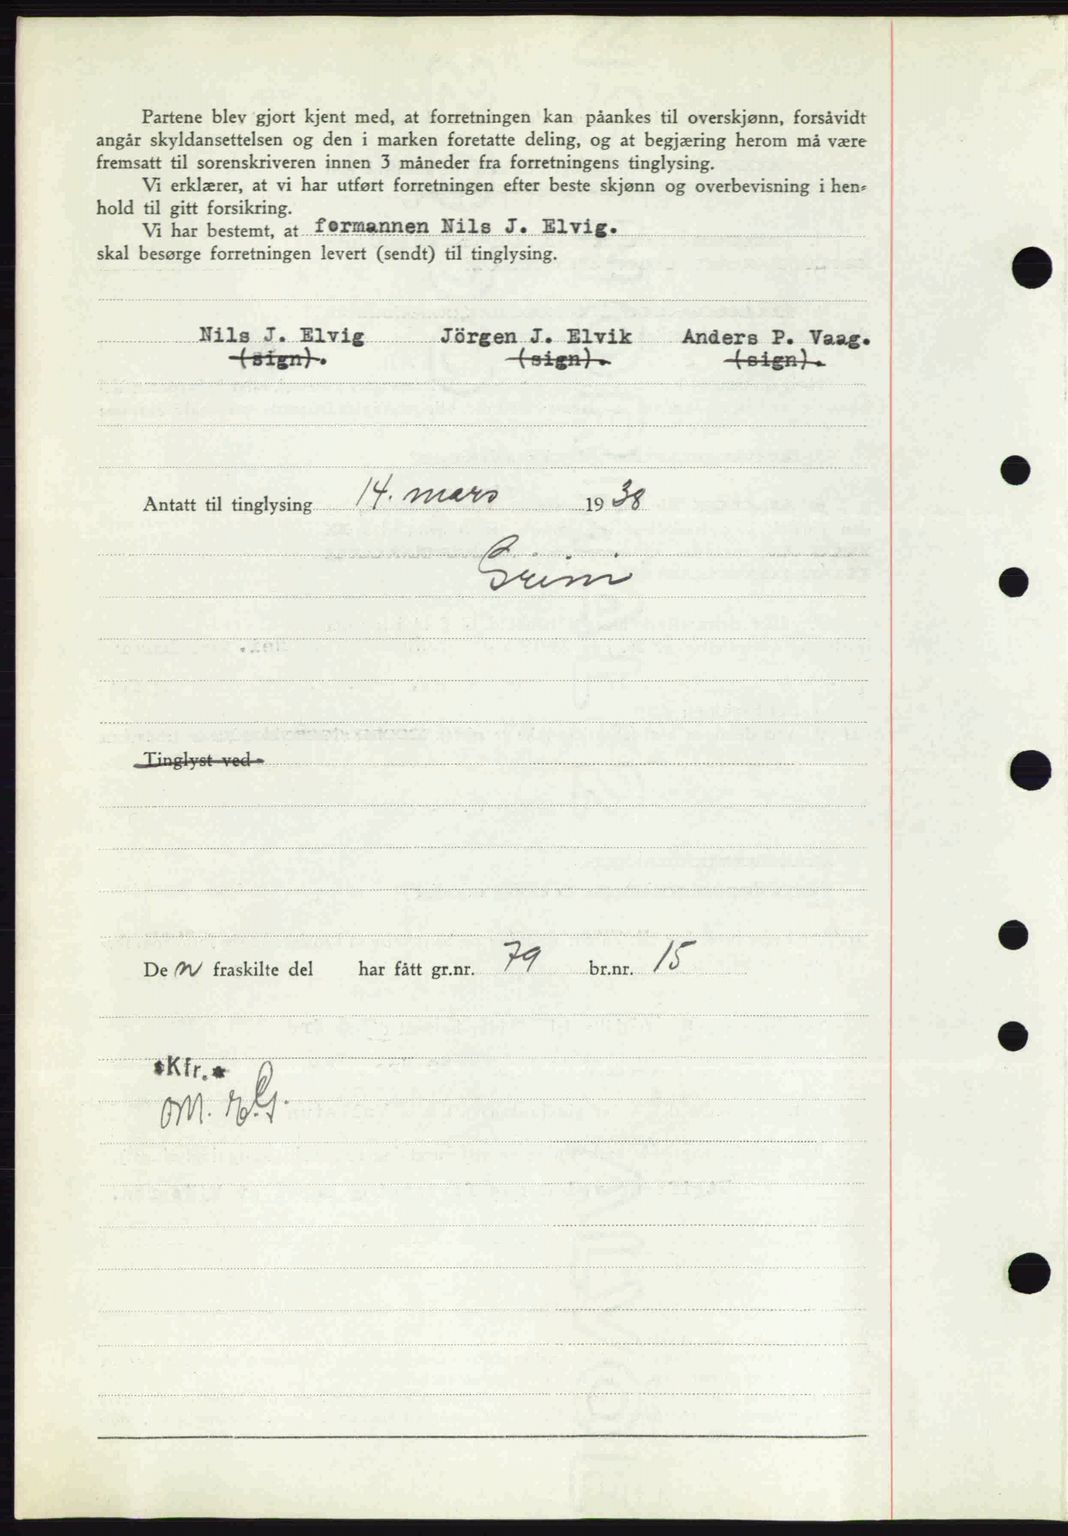 Partene blev gjort kjent med, at forretningen kan påankes til overskjønn, forsåvidt
angår skyldansettelsen og den i marken foretatte deling, og at begjæring herom må være
fremsatt til sorenskriveren innen 3 måneder fra forretningens tinglysing.
Vi erklærer, at vi har utført forretningen efter beste skjønn og overbevisning i hen-
hold til gitt forsikring.
Vi har bestemt, at formannen Nils J. Elvig.
skal besørge forretningen levert (sendt) til tinglysing.
Nils J. Elvig Jörgen J. Elvik Anders P. Vaag.
(sign). (sign). (sign).
Antatt til tinglysing 14. mars 1938
Grim
Tinglyst ved
De n fraskilte del har fått gr.nr. 79 br.nr. 15
*Kfr.*